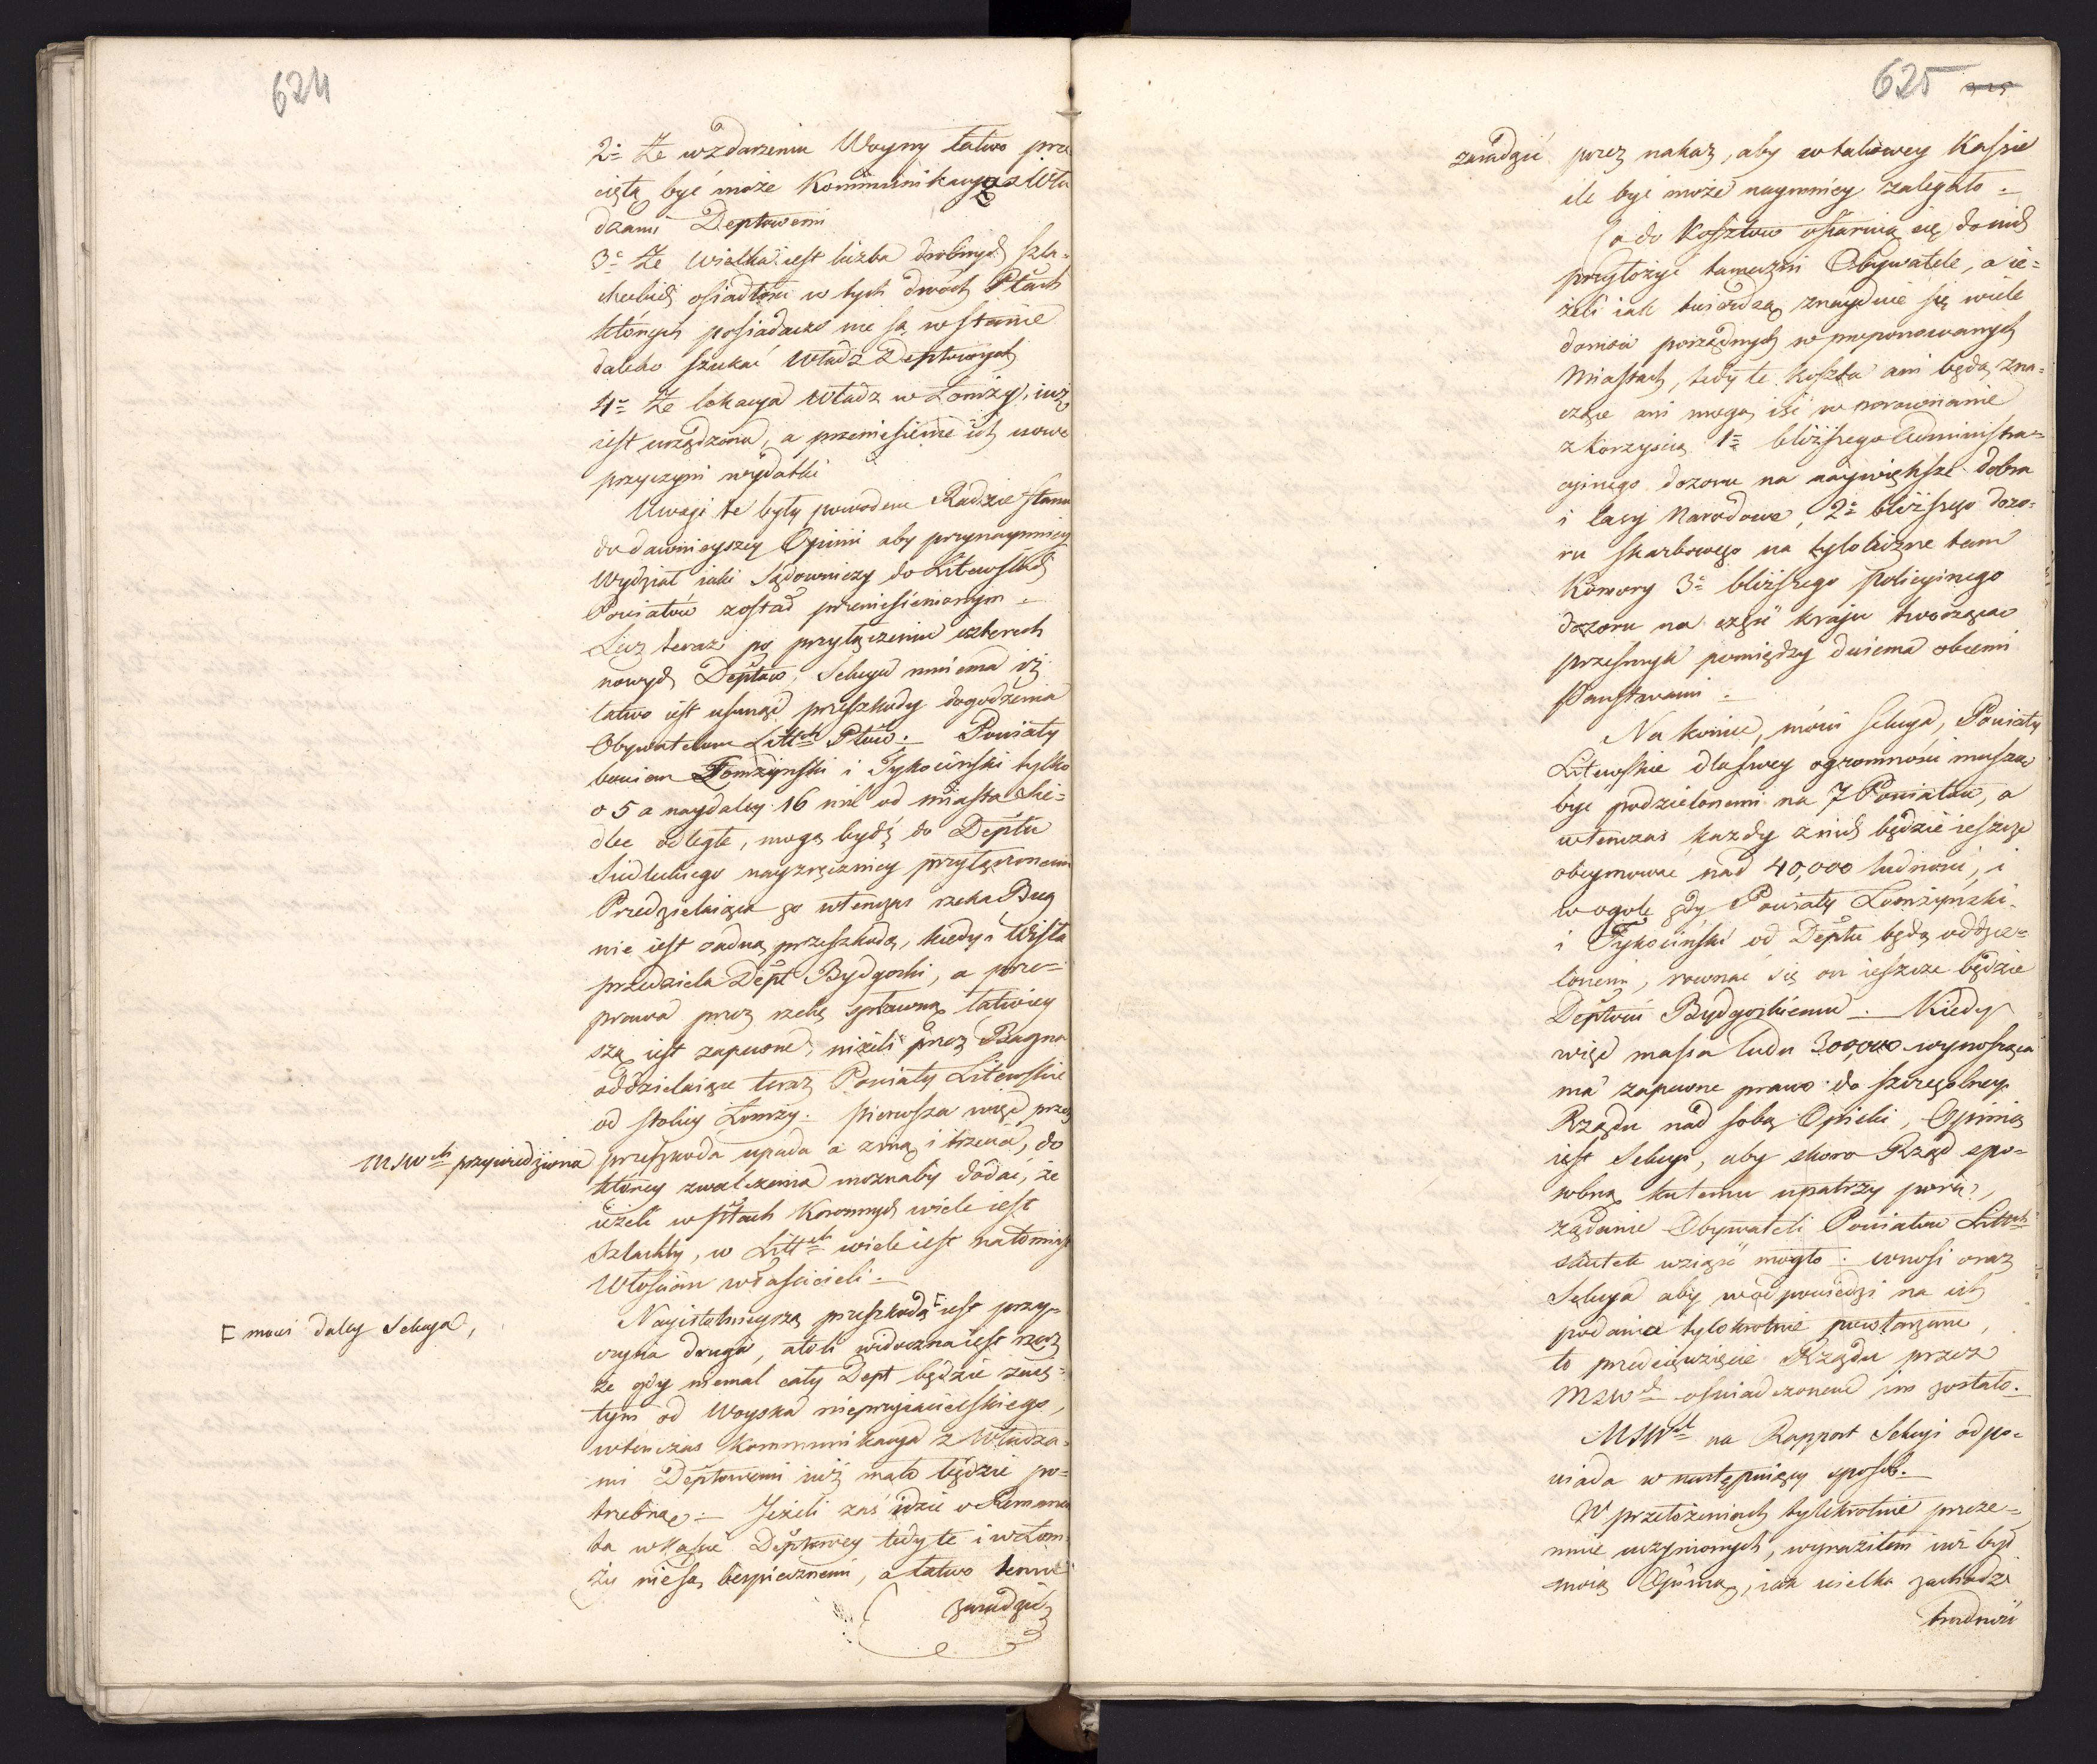 624
2o Że w zdarzeniu Woyny łatwo prze
ciętą być może Kommunikacya z Wła
dzami Deptowemi
3o Że wielka iest liczba drobnych szla=
checkich osiadłości w tych dwóch Ptach
których posiadacze nie są w stanie
daleko szukać Władz Deptowych
4o Że lokacya Władz w Łomży, iuż
iest urządzona, a przeniesienie ich nowe
przyczyni wydatki
Uwagi te były powodem Radzie Stanu
do dawnieyszey Opinii aby przynaymniey
Wydział iaki Sądowniczy do Litewskich
Powiatów został przeniesionym.
Lecz teraz po przyłączeniu czterech
nowych Deptów, Sekcya mniema iż
łatwo iest usunąć przeszkody dogodzenia
Obywatelom Littch Ptów. Powiaty
bowiem Łomżynski i Tykocinski tylko
o 5 a naydaley 16 mil od miasta Sie=
dlec odległe, mogą bydź do Deptu
Siedleckiego nayzręczniey przyłączonemi
Przedzielaiąca go wtenczas rzeka Bug
nie iest żadną przeszkodą, kiedy i Wisła
przedziela Dept Bydgoski, a prze=
prawa przez rzekę spławną łatwiey
szą iest zapewne, niżeli przez Bagna
oddzielaiące teraz Powiaty Litewskie
od stolicy Łomży. pierwsza więc przez
MSWch przywiedziona przeszkoda upada a z nią i trzecia, do
którey zwalczenia możnaby dodać, że
ieżeli w Ptach Koronnych wiele iest
Szlachty, w Littch wiele iest natomiast
Włościan właścicieli.
Nayistotnieyszą przeszkodą [ iest przy=
[ mowi daley Sekcya,
czyna druga, atoli widoczna iest rzecz
że gdy niemal cały Dept będzie zaię=
tym od Woyska nieprzyiacielskiego,
wtenczas Kommunikacya z Władza=
mi Deptowemi iuż mało będzie po=
trzebną. Jeżeli zaś idzie o Remanen
ta w Kassie Deptowey tedy te i w Łom
ży nie są bezpiecznemi, a łatwo temu
zaradzić
625
zaradzić przez nakaz, aby w takowey Kassie
ile być może naymniey zalegało.
Co do Kosztow ofiaruią się do nich
przyłożyć tameczni Obywatele, a ie=
żeli iak twierdzą znayduie się wiele
domów porządnych w proponowanych
Miastach, tedy te koszta ani będą zna=
czące ani mogą iść w porownanie
z korzyścią 1o bliższego Administra=
cyinego dozoru na naywiększe dobra
i lasy Narodowe, 2o bliższego dozo=
ru skarbowego na tyloliczne tam
Komory 3o bliższego policyinego
dozoru na część kraju tworzącą
przesmyk pomiędzy dwiema obcemi
Państwami.
Na koniec, mówi Sekcya, Powiaty
Litewskie dla swey ogromności muszą
być podzielonemi na 7 Powiatów, a
wtenczas każdy z nich będzie ieszcze
obeymować nad 40,000 ludności, i
w ogole gdy Powiaty Łomżyński
i Tykociński od Deptu będą oddzie=
lonemi, rownać się on ieszcze będzie
Deptowi Bydgoskiemu. Kiedy
więc massa ludu 300,000 wynosząca
ma zapewne prawo do szczególney
Rządu nad sobą Opieki, Opinią
iest Sekcyi, aby skoro Rząd spo=
sobną ku temu upatrzy porę,
żądanie Obywateli Powiatów Littch
skutek wziąść mogło. wnosi oraz
Sekcya aby w odpowiedzi na ich
podania tylokrotnie powtarzane,
to przedsięwzięcie Rządu przez
MSWch oświadczonem im zostało.
MSWch na Rapport Sekcyi odpo=
wiada w następuiący sposób.
W przełożeniach tylekrotnie przeze=
mnie uczynionych, wyraziłem iuż być
moią Opinią, iak wielka zachodzi
trudność